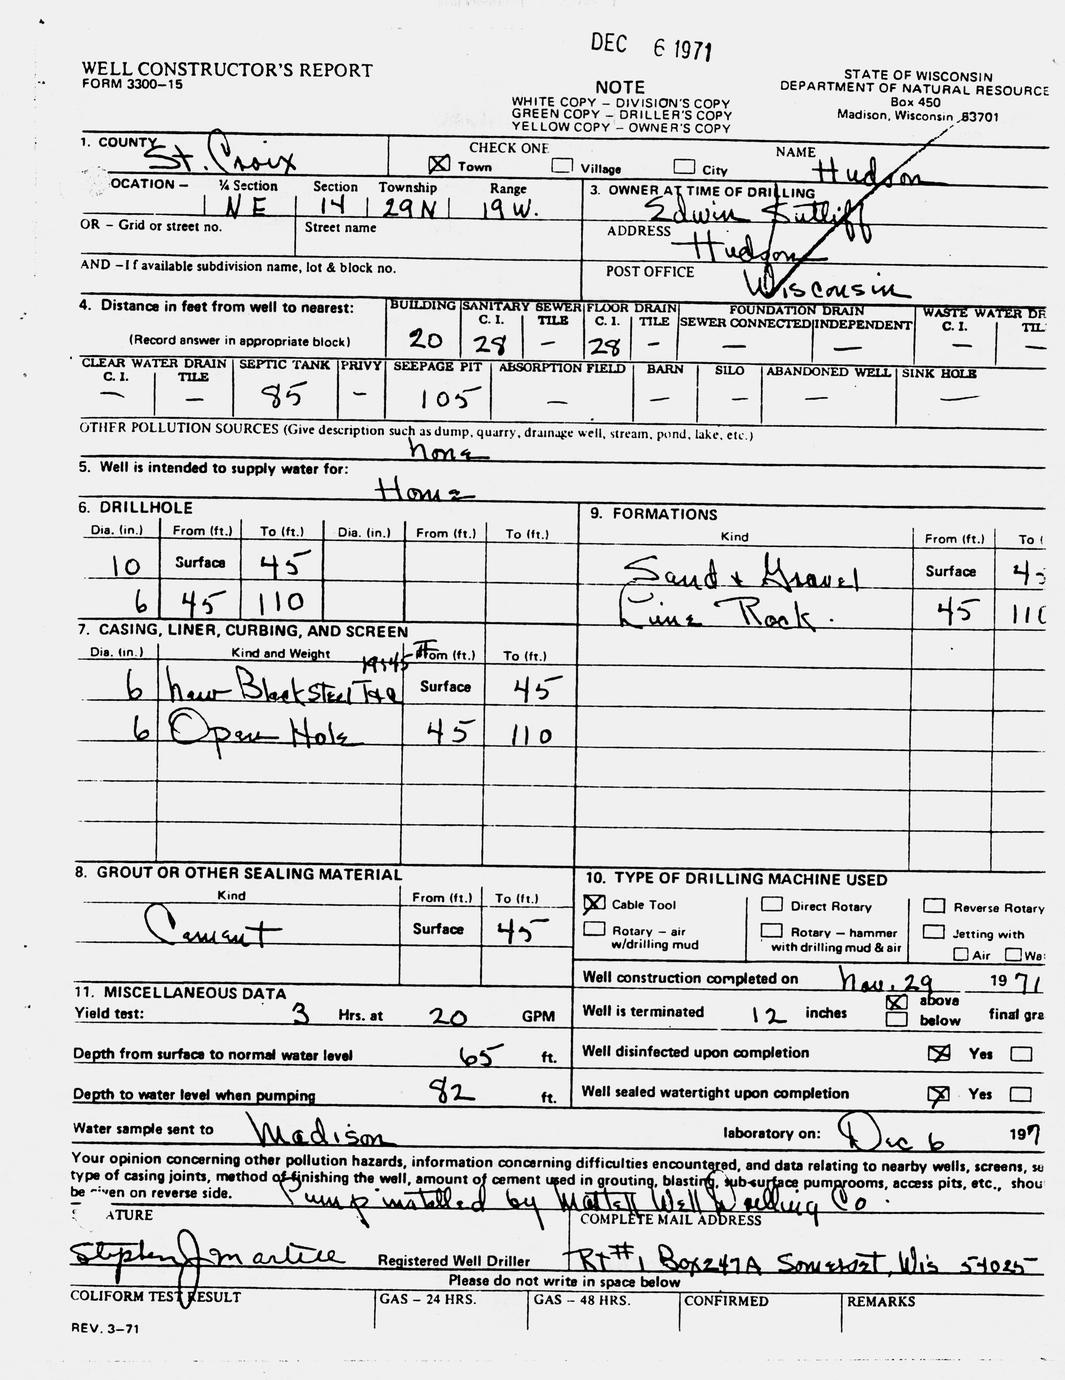 DEC 6 1971
WELL CONSTRUCTOR'S REPORT
FORM 3300-15
NOTE
WHITE COPY – DIVISION'S COPY
GREEN COPY – DRILLER'S COPY
YELLOW COPY – OWNER'S COPY
STATE OF WISCONSIN
DEPARTMENT OF NATURAL RESOURCE
Box 450
Madison, Wisconsin 53701
1. COUNTY St. Croix
CHECK ONE
Town Village City
NAME Hudson
OCATION – ¼ Section Section Township Range
NE 14 29N 19W.
3. OWNER AT TIME OF DRILLING
Edwin Sutliff
OR – Grid or street no. Street name
ADDRESS Hudson
AND –If available subdivision name, lot & block no.
POST OFFICE Wisconsin
4. Distance in feet from well to nearest:
(Record answer in appropriate block)
BUILDING SANITARY SEWER FLOOR DRAIN FOUNDATION DRAIN WASTE WATER DR
C. I. TILE C. I. TILE SEWER CONNECTED INDEPENDENT C. I. TIL
20 28 – 28 – – – – –
CLEAR WATER DRAIN SEPTIC TANK PRIVY SEEPAGE PIT ABSORPTION FIELD BARN SILO ABANDONED WELL SINK HOLE
C. I. TILE
– – 85 – 105 – – – – –
OTHER POLLUTION SOURCES (Give description such as dump, quarry, drainage well, stream, pond, lake, etc.)
none
5. Well is intended to supply water for:
Home
6. DRILLHOLE
Dia. (in.) From (ft.) To (ft.) Dia. (in.) From (ft.) To (ft.)
10 Surface 45
6 45 110
9. FORMATIONS
Kind From (ft.) To (
Sand & Gravel Surface 45
Lime Rock. 45 110
7. CASING, LINER, CURBING, AND SCREEN
Dia. (in.) Kind and Weight From (ft.) To (ft.)
6 new Black Steel T&C Surface 45
6 Open Hole 45 110
8. GROUT OR OTHER SEALING MATERIAL
Kind From (ft.) To (ft.)
Cement Surface 45
10. TYPE OF DRILLING MACHINE USED
Cable Tool Direct Rotary Reverse Rotary
Rotary – air w/drilling mud Rotary – hammer with drilling mud & air Jetting with
Air Wa
Well construction completed on Nov. 29 1971
11. MISCELLANEOUS DATA
Yield test: 3 Hrs. at 20 GPM
Well is terminated 12 inches above below final gra
Depth from surface to normal water level 65 ft.
Well disinfected upon completion Yes
Depth to water level when pumping 82 ft.
Well sealed watertight upon completion Yes
Water sample sent to Madison laboratory on: Dec 6 197
Your opinion concerning other pollution hazards, information concerning difficulties encountered, and data relating to nearby wells, screens, se
type of casing joints, method of finishing the well, amount of cement used in grouting, blasting, sub-surface pumprooms, access pits, etc., shou
be given on reverse side. Pump installed by Well Co.
ATURE
COMPLETE MAIL ADDRESS
Stephen J Registered Well Driller Rt #1 Box 247A Somerset, Wis 54025
Please do not write in space below
COLIFORM TEST RESULT GAS – 24 HRS. GAS – 48 HRS. CONFIRMED REMARKS
REV. 3-71